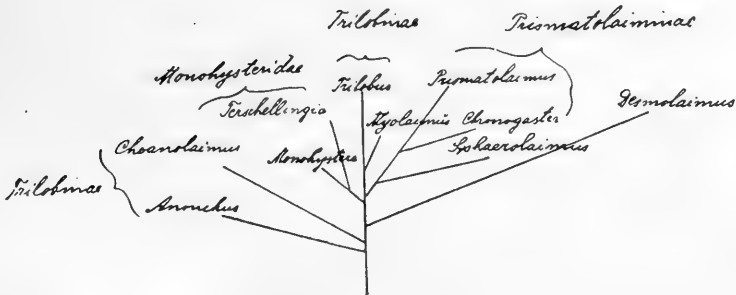 Trilobinae
Prismatolaiminae
Monohysteridae
Trilobus
Prismatolaimus
Terschellingia
Desmolaimus
Choanolaimus
Myolaimus
Chronogaster
Monohystera
Sphaerolaimus
Trilobinae
Anonchus